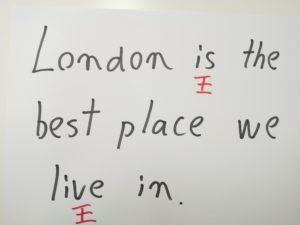 London is the
王
best place we
live in.
王